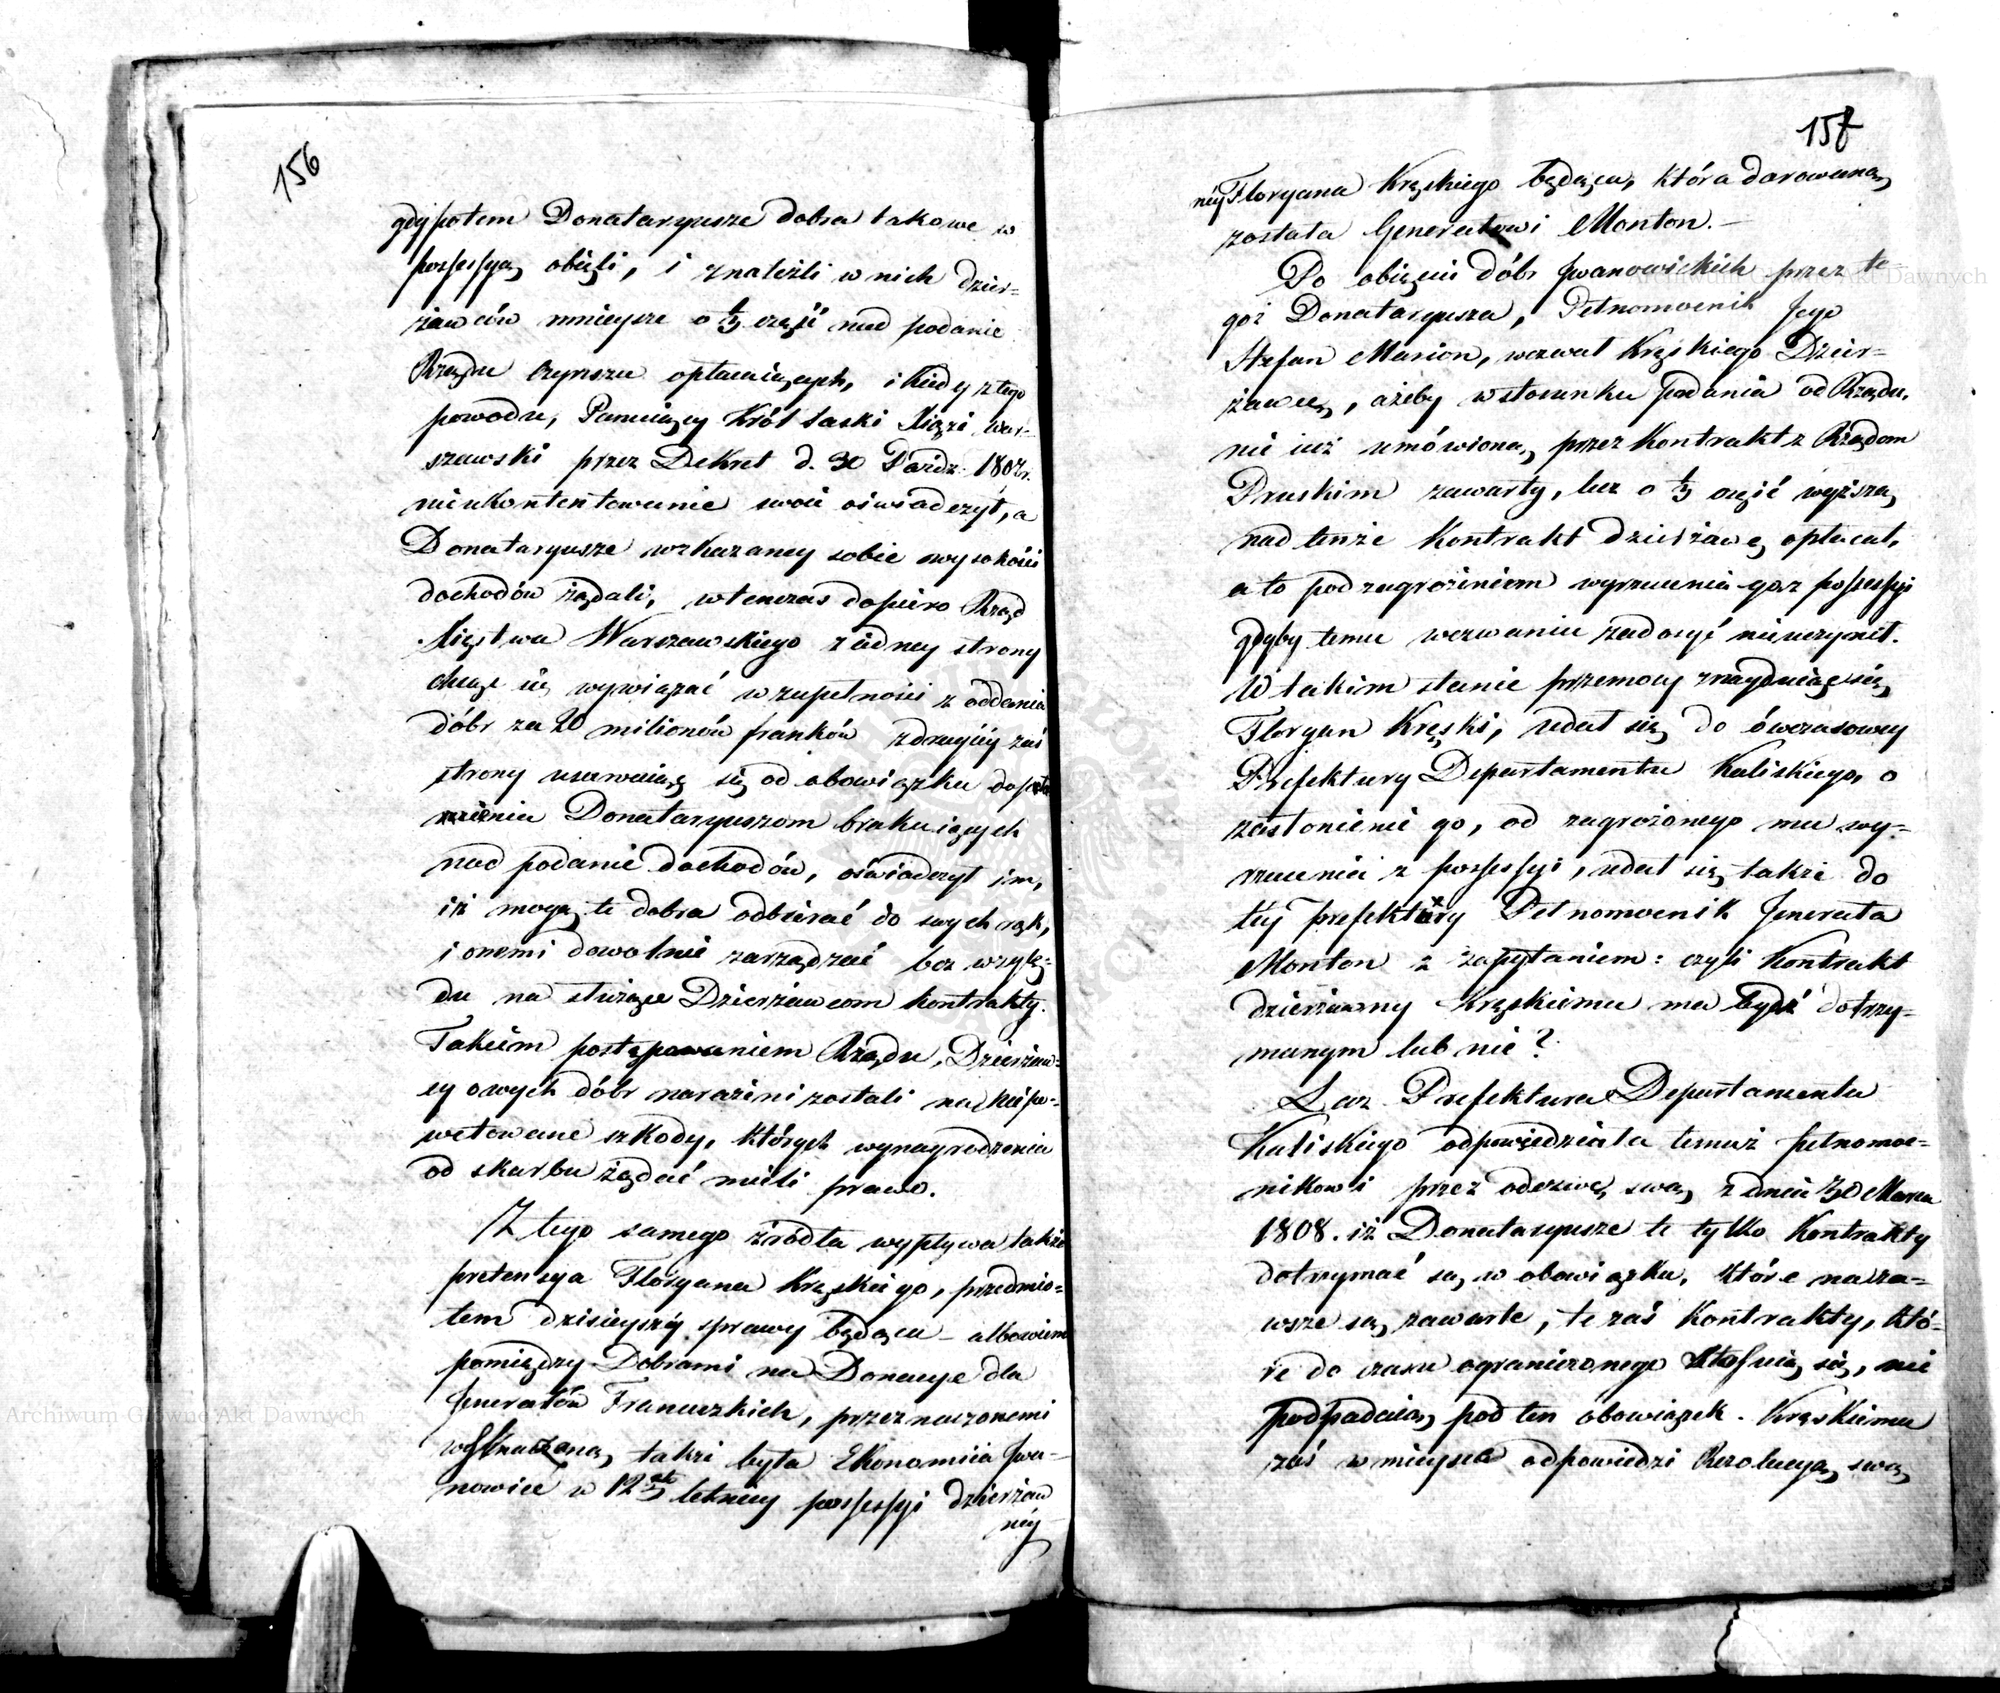 156
gdy potem Donataryusze dobra takowe w
possessyą obięli, i znaleźli w nich dzier=
żawców mnieysze o ⅓ część nad podanie
Rządu czynsze opłacaiących, i kiedy z tego
powodu, Panuiący Król Saski Xiąże War=
szawski przez Dekret d. 30 Paźdz. 1807r.
nieukontentowanie swoie oświadczył, a
Donataryusze wskazaney sobie wysokości
dochodów żądali, wtenczas dopiero Rząd
Xięstwa Warszawskiego z iedney strony
chcąc się wywiązać w zupełności z oddania
dóbr za 20 milionów franków z drugiéy zaś
strony usuwaiąc się od obowiązku dopeł
nienia Donataryuszom brakuiących
nad podanie dochodów, oświadczył im,
iż mogą te dobra odbierać do swych rąk,
i onemi dowolnie zarządzać bez wzglę=
du na służące Dzierżawcom kontrakty.
Takiem postępowaniem Rządu, Dzierżaw=
cy owych dóbr narażeni zostali na niepo=
wetowane szkody, których wynagrodzenia
od skarbu żądać mieli prawo.
Z tego samego źródła wypływa także
pretensya Floryana Kręskiego, przedmio=
tem dzisieyszéy sprawy będąca – albowiem
pomiędzy Dobrami na Donacye dla
Jenerałów Francuzkich, przeznaczonemi
także była Ekonomiia Iwa=
nowice w 12sto letniey possessyi dzierżaw
néy
157
néy Floryana Kręskiego będąca, która darowaną
została Generałowi Monton. –
Po obięciu dóbr Iwanowickich przez te=
goż Donataryusza, Pełnomocnik Jego
Stefan Marion, wezwał Kręskiego Dzier=
żawcę, ażeby w stosunku podania od Rządu,
nie iuż umówioną, przez Kontrakt z Rządem
Pruskim zawarty, lecz o ⅓ część wyższą,
nad tenże Kontrakt dzierżawę opłacał,
a to pod zagrożeniem wyrzucenia go z possessyi
gdyby temu wezwaniu zadosyć nieuczynił.
W takim stanie przemocy znayduiąc się
Floryan Kręski, udał się do ówczasowey
Prefektury Departamentu Kaliskiego, o
zasłonienie go, od zagrożonego mu wy=
rzucenia z possessyi, udał się także do
téy prefektury Pełnomocnik Jenerała
Monton z zapytaniem: czyli Kontrakt
dzierżawny Kręskiemu ma bydź dotrzy=
manym lub nie?
Lecz Prefektura Departamentu
Kaliskiego odpowiedziała temuż pełnomoc=
nikowi przez odezwę swą z dnia 30 Marca
1808. iż Donataryusze te tylko Kontrakty
dotrzymać są w obowiązku, które na za=
wsze są zawarte, te zaś Kontrakty, któ=
re do czasu ograniczonego stosuią się, nie
podpadaią pod ten obowiązek. Kręskiemu
zaś w mieysce odpowiedzi Rezolucyą swą
Archiwum Główne Akt Dawnych
Archiwum Główne Akt Dawnych